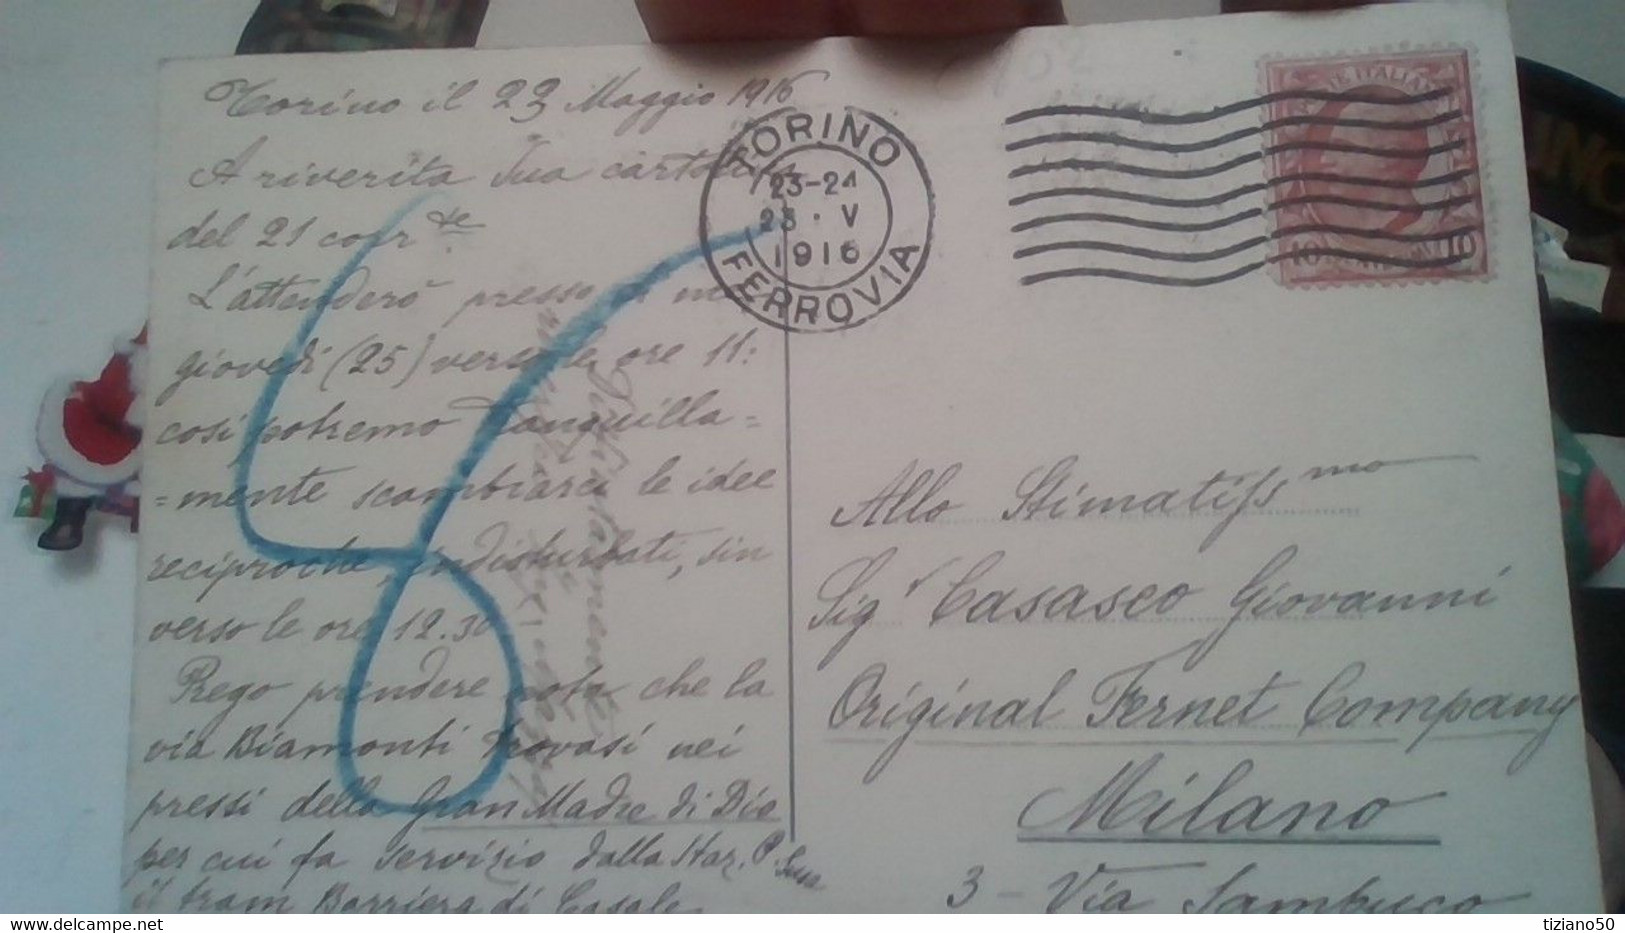 Torino il 23 Maggio 1916
A riverita Sua cartolina
del 21 corr.te
L'attenderò presso di me
giovedì (25) verso le ore 11:
così potremo tranquilla=
=mente scambiarci le idee
reciproche, indisturbati, sin
verso le ore 12.30
Prego prendere nota che la
via Biamonti trovasi nei
pressi della Gran Madre di Dio
per cui fa servizio dalla Staz. P. Susa
il tram Barriera di Casale
Distintamente
TORINO
23-24
23 · V
1916
FERROVIA
POSTE ITALIANE
10 CENTESIMI 10
Allo Stimatiss.mo
Sigr Casasco Giovanni
Original Fernet Company
Milano
3 - Via Sambuco
tiziano50